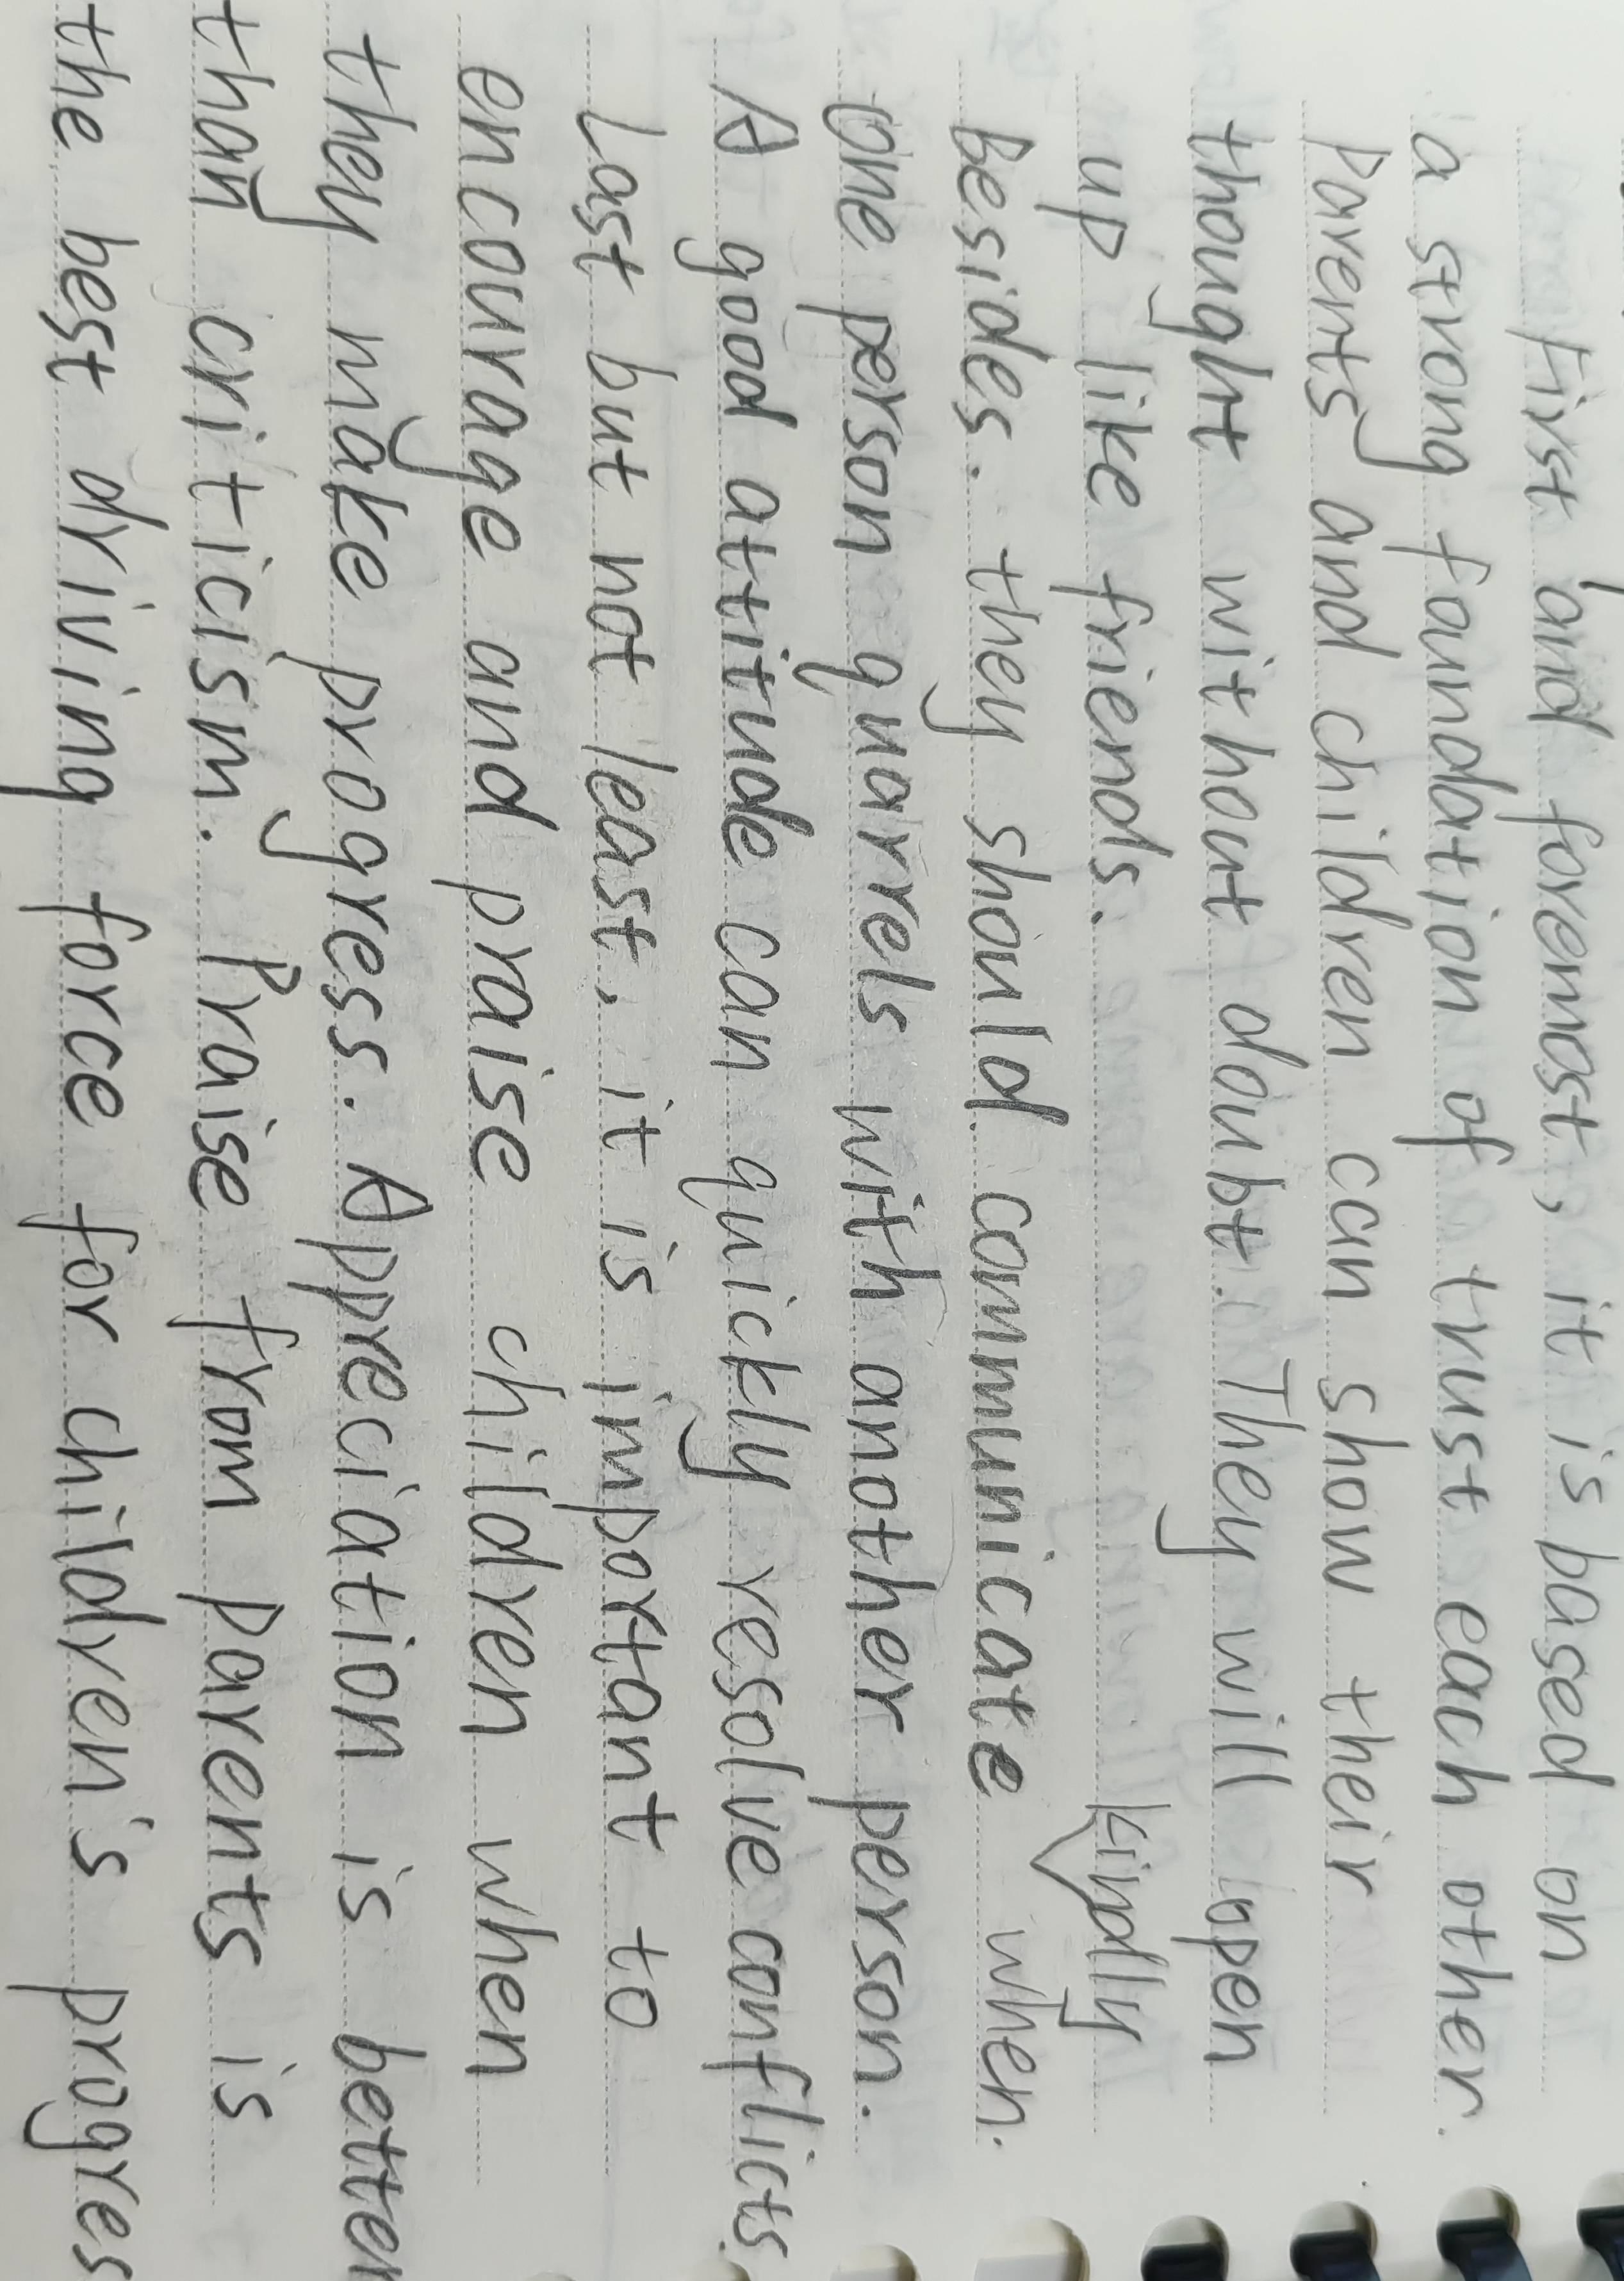 First and foremost, it is based on
a strong foundation of trust each other.
Parents and children can show their
thought without doubt. They will open
up like friends.
besides. they should communicate kindly when.
one person quarrels with another person.
A good attitude can quickly resolve conflicts.
Last but not least, it is important to
encourage and praise children when
they make progress. Appreciation is better
than criticism. Praise from parents is
the best driving force for children's progres